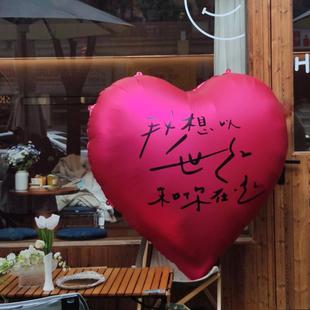 我想以
世纪
和你在一起
H